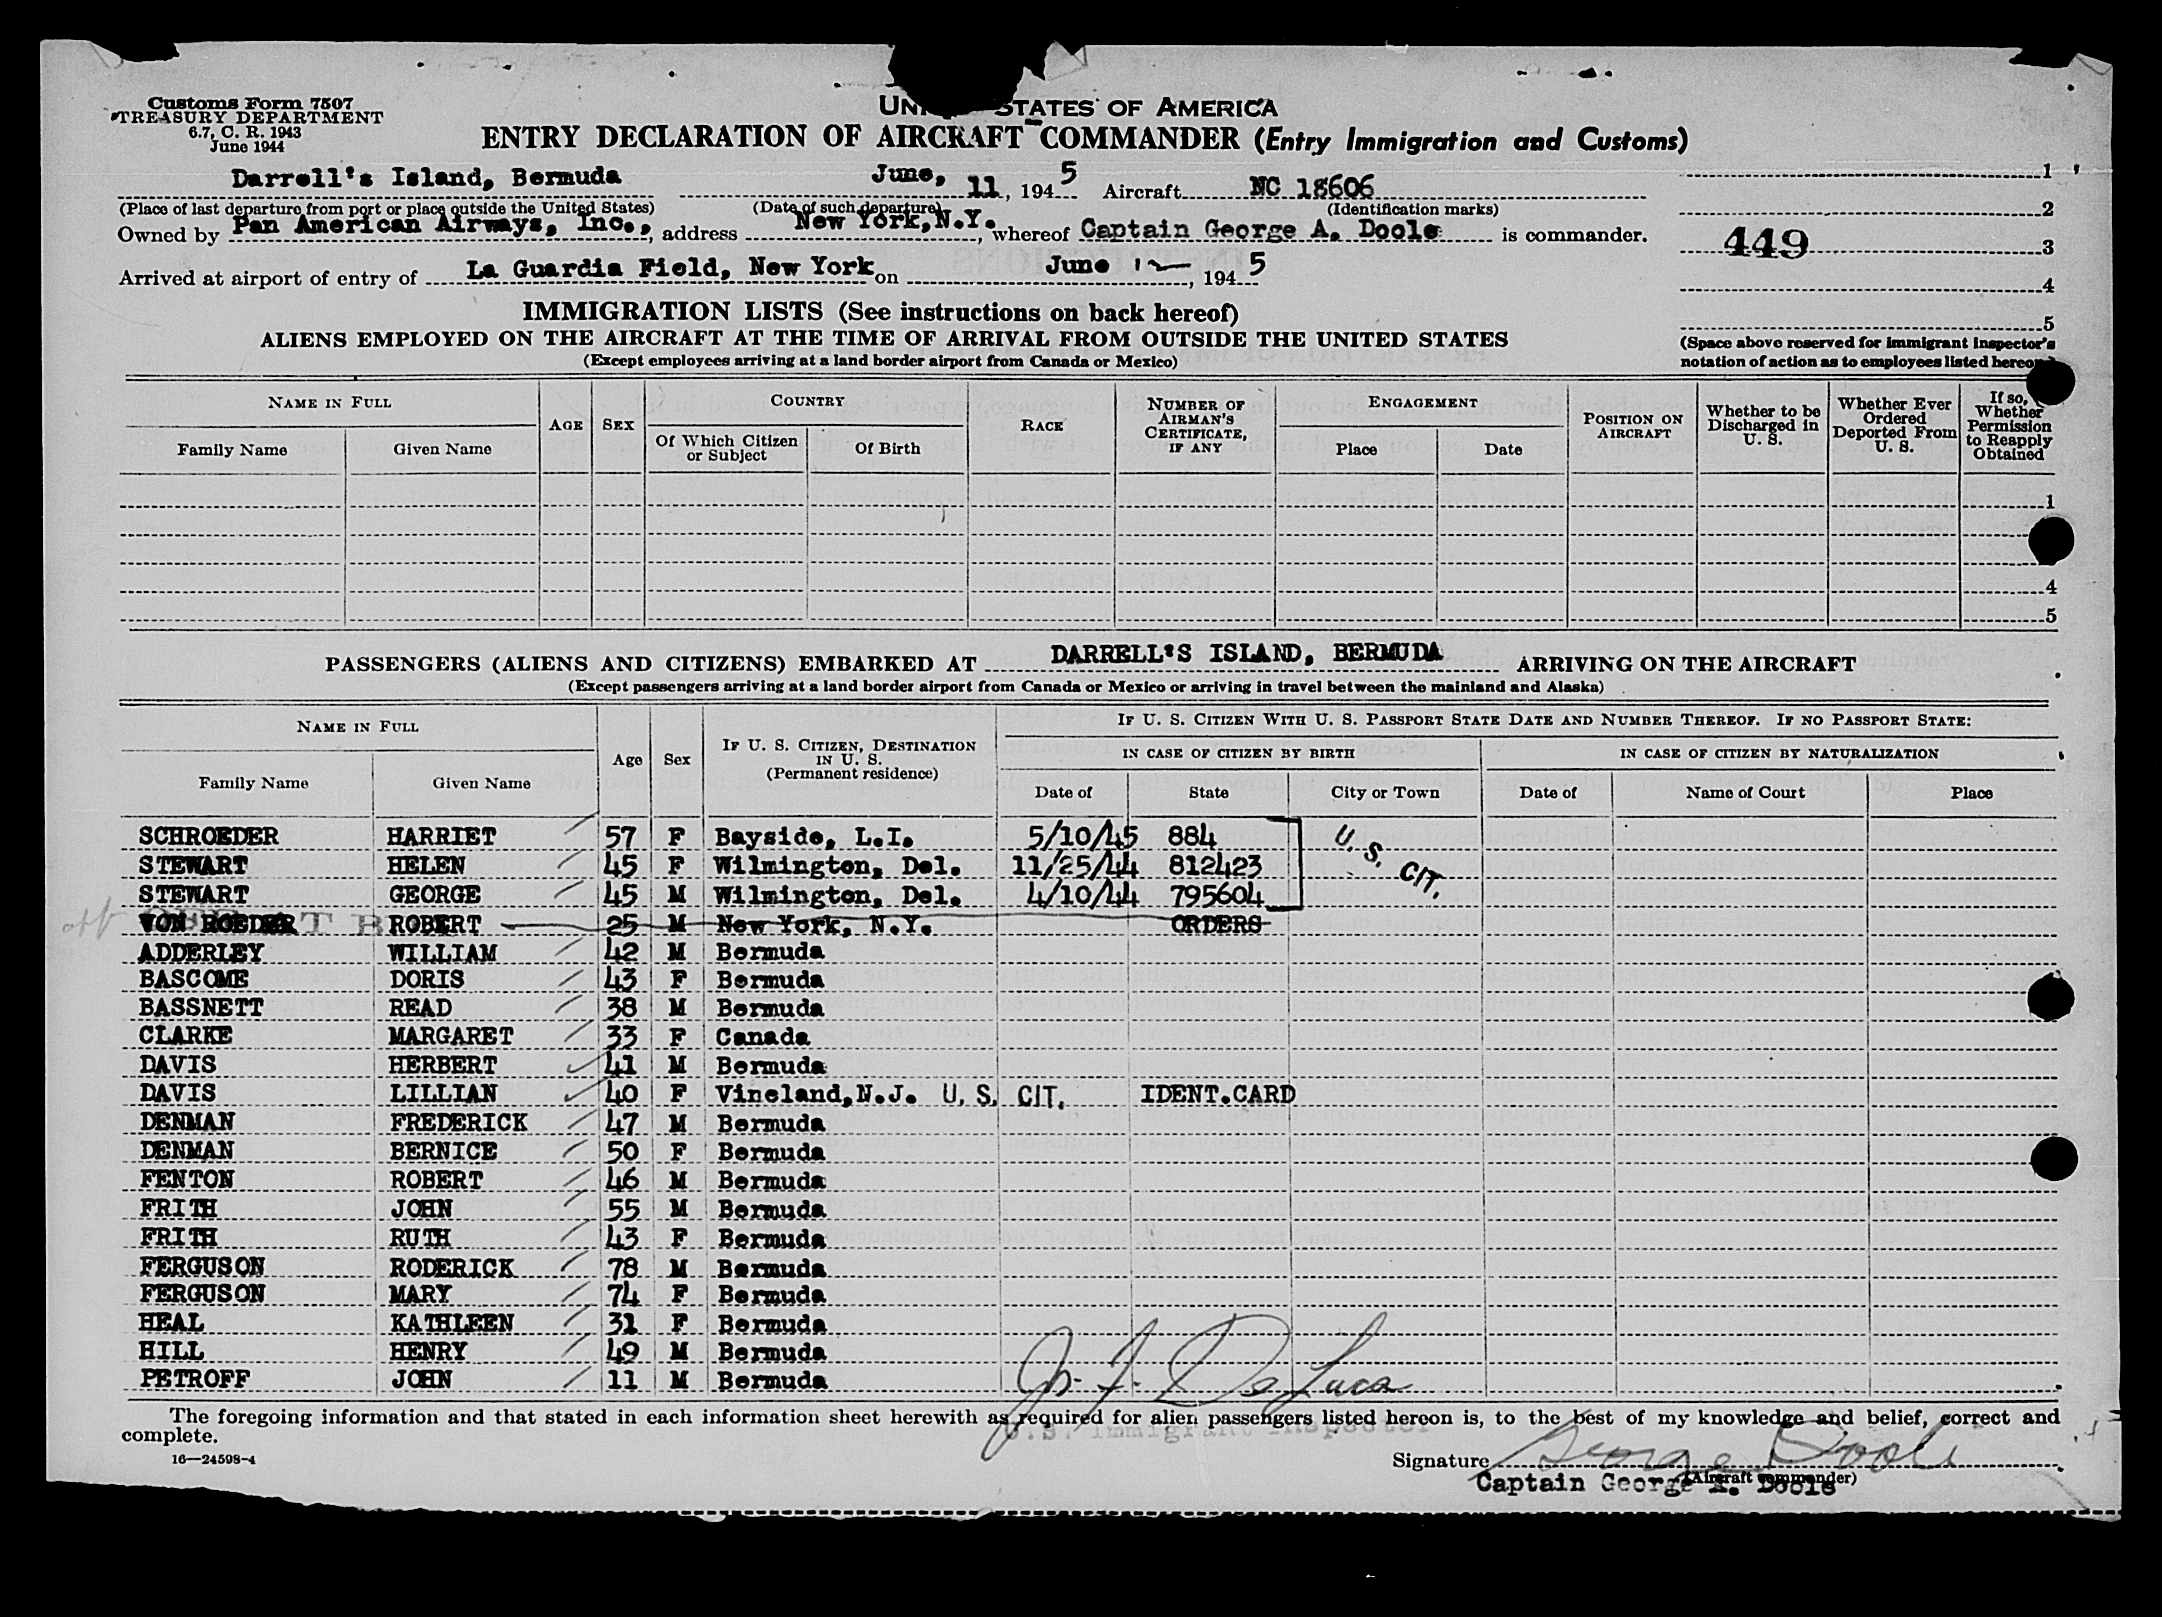 Customs Form 7507
TREASURY DEPARTMENT
6.7, C. R. 1943
June 1944
STATES OF AMERICA
ENTRY DECLARATION OF AIRCRAFT COMMANDER (Entry Immigration and Customs)
Darrell's Island, Bermuda June, 11, 1945 Aircraft NC 18606 1
(Place of last departure from port or place outside the United States) (Date of such departure) (Identification marks) 2
Owned by Pan American Airways, Inc., address New York, N.Y., whereof Captain George A. Doole is commander. 449 3
Arrived at airport of entry of La Guardia Field, New York on June 12, 1945 4
IMMIGRATION LISTS (See instructions on back hereof) 5
ALIENS EMPLOYED ON THE AIRCRAFT AT THE TIME OF ARRIVAL FROM OUTSIDE THE UNITED STATES
(Except employees arriving at a land border airport from Canada or Mexico)
(Space above reserved for immigrant inspector's
notation of action as to employees listed
NAME IN FULL
Family Name Given Name
AGE SEX
COUNTRY
Of Which Citizen or Subject Of Birth
RACE
NUMBER OF AIRMAN'S CERTIFICATE, IF ANY
ENGAGEMENT
Place Date
POSITION ON AIRCRAFT
Whether to be Discharged in U. S.
Whether Ever Ordered Deported From U. S.
If so, Whether Permission to Reapply Obtained
1
4
5
PASSENGERS (ALIENS AND CITIZENS) EMBARKED AT DARRELL'S ISLAND, BERMUDA ARRIVING ON THE AIRCRAFT
(Except passengers arriving at a land border airport from Canada or Mexico or arriving in travel between the mainland and Alaska)
NAME IN FULL
Family Name Given Name
Age Sex
IF U. S. CITIZEN, DESTINATION IN U. S.
(Permanent residence)
IF U. S. CITIZEN WITH U. S. PASSPORT STATE DATE AND NUMBER THEREOF. IF NO PASSPORT STATE:
IN CASE OF CITIZEN BY BIRTH IN CASE OF CITIZEN BY NATURALIZATION
Date of State City or Town Date of Name of Court Place
SCHROEDER HARRIET 57 F Bayside, L.I. 5/10/45 884 U. S. CIT.
STEWART HELEN 45 F Wilmington, Del. 11/25/44 812423
STEWART GEORGE 45 M Wilmington, Del. 4/10/44 795604
VON ROEDER ROBERT 25 M New York, N.Y. ORDERS
ADDERLEY WILLIAM 42 M Bermuda
BASCOME DORIS 43 F Bermuda
BASSNETT READ 38 M Bermuda
CLARKE MARGARET 33 F Canada
DAVIS HERBERT 41 M Bermuda
DAVIS LILLIAN 40 F Vineland, N.J. U. S. CIT. IDENT.CARD
DENMAN FREDERICK 47 M Bermuda
DENMAN BERNICE 50 F Bermuda
FENTON ROBERT 46 M Bermuda
FRITH JOHN 55 M Bermuda
FRITH RUTH 43 F Bermuda
FERGUSON RODERICK 78 M Bermuda
FERGUSON MARY 74 F Bermuda
HEAL KATHLEEN 31 F Bermuda
HILL HENRY 49 M Bermuda
PETROFF JOHN 11 M Bermuda
J. F. De Luca
U.S. Immigrant Inspector
The foregoing information and that stated in each information sheet herewith as required for alien passengers listed hereon is, to the best of my knowledge and belief, correct and
complete.
16—24598-4
Signature George Doole
(Aircraft commander)
Captain George A. Doole